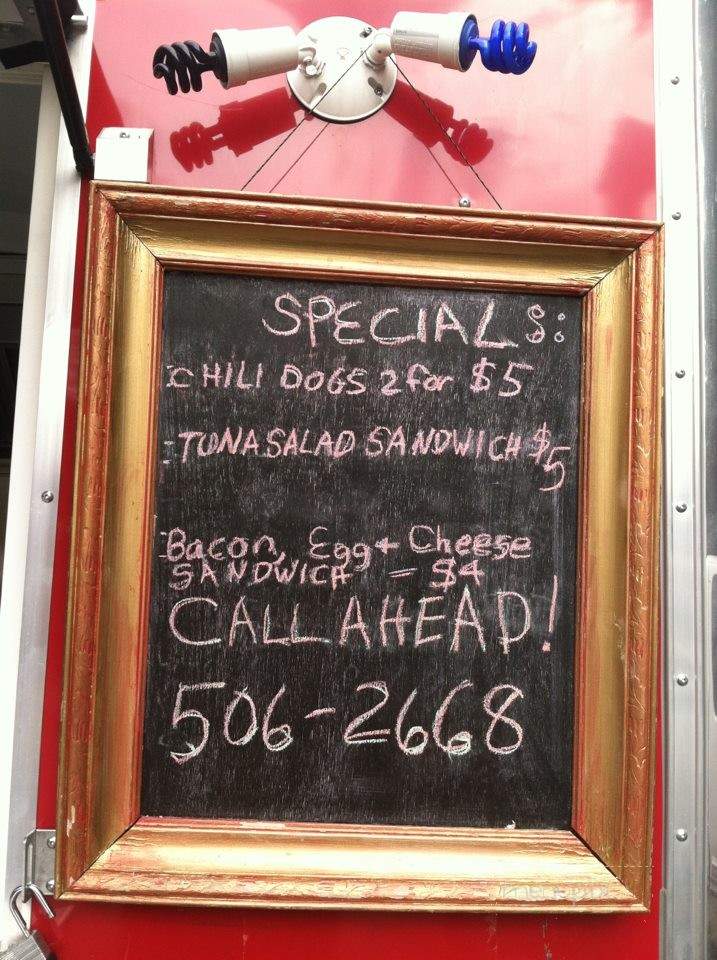 SPECIALS:
CHILI DOGS 2 for $5
-TUNA SALAD SANDWICH $5
Bacon, Egg + Cheese
SANDWICH = $4
CALL AHEAD!
506-2668